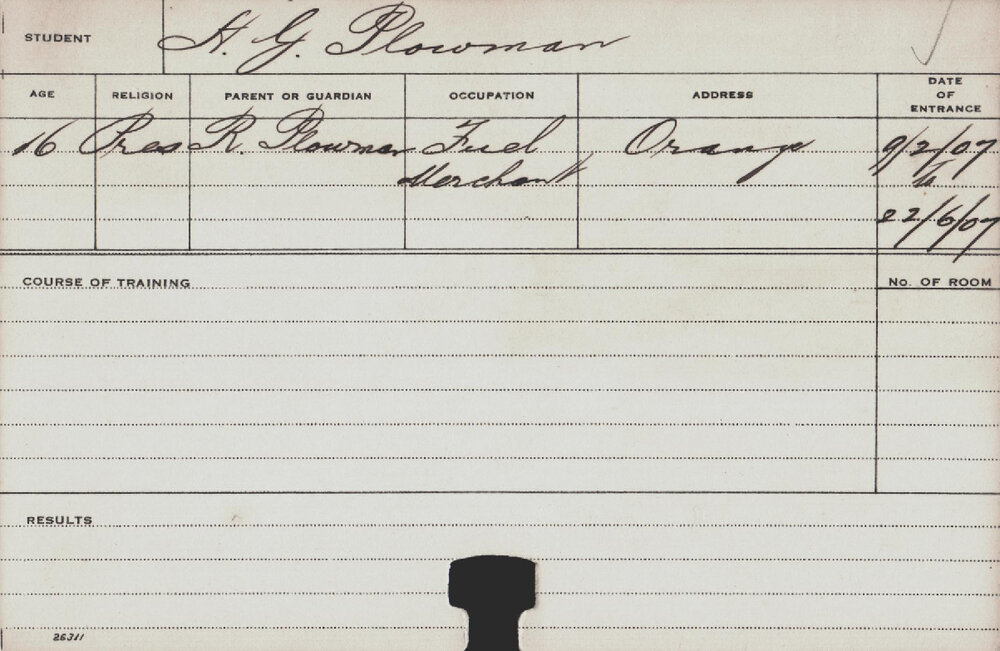 STUDENT H. G. Plowman
AGE RELIGION PARENT OR GUARDIAN OCCUPATION ADDRESS DATE OF ENTRANCE
16 Pres R. Plowman Fuel Orange 9/2/07
Merchant to
22/6/07
COURSE OF TRAINING No. OF ROOM
RESULTS
26311